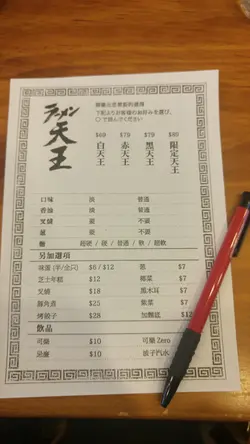 ラーメン
天王
$69 $79 $79 $89
白天王 赤天王 黑天王 限定天王
口味 淡 普通
香油 淡 普通
叉燒 不要
蔥 不要
麵 超硬 / 硬 / 普通 / 軟 / 超軟
另加選項
味蛋 (半/全只) $6 / $12 蔥 $7
芝士年糕 $12 椰菜 $7
叉燒 $18 黑木耳 $7
豚角煮 $25 紫菜 $7
烤餃子 $28 加麵底 $12
飲品
可樂 $10 可樂 Zero $10
忌廉 $10 波子汽水